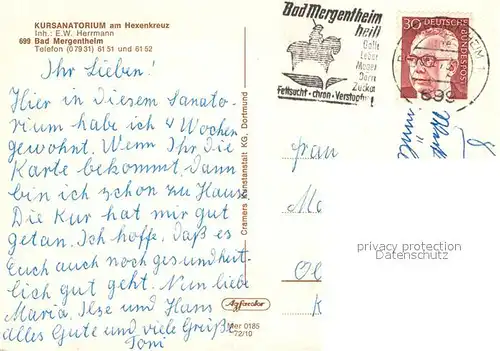 KURSANATORIUM am Hexenkreuz
Inh.: E.W. Herrmann
699 Bad Mergentheim
Telefon (07931) 6151 und 6152
Ihr Lieben!
Hier in diesem Sanato-
rium habe ich 4 Wochen
gewohnt. Wenn Ihr die
Karte bekommt, dann
bin ich schon zu Hause.
Die Kur hat mir gut
getan. Ich hoffe, daß es
Euch auch noch gesundheit-
lich gut geht. Nun liebe
Maria, Ilse und Hans
alles Gute und viele Grüße
Toni
Cramers Kunstanstalt KG, Dortmund
Agfacolor
Mer 0185
72/10
Bad Mergentheim
heilt
Galle
Leber
Magen
Darm
Zucker
Fettsucht - chron. Verstopfg.!
30
DEUTSCHE
BUNDESPOST
699
Frau
privacy protection
Datenschutz